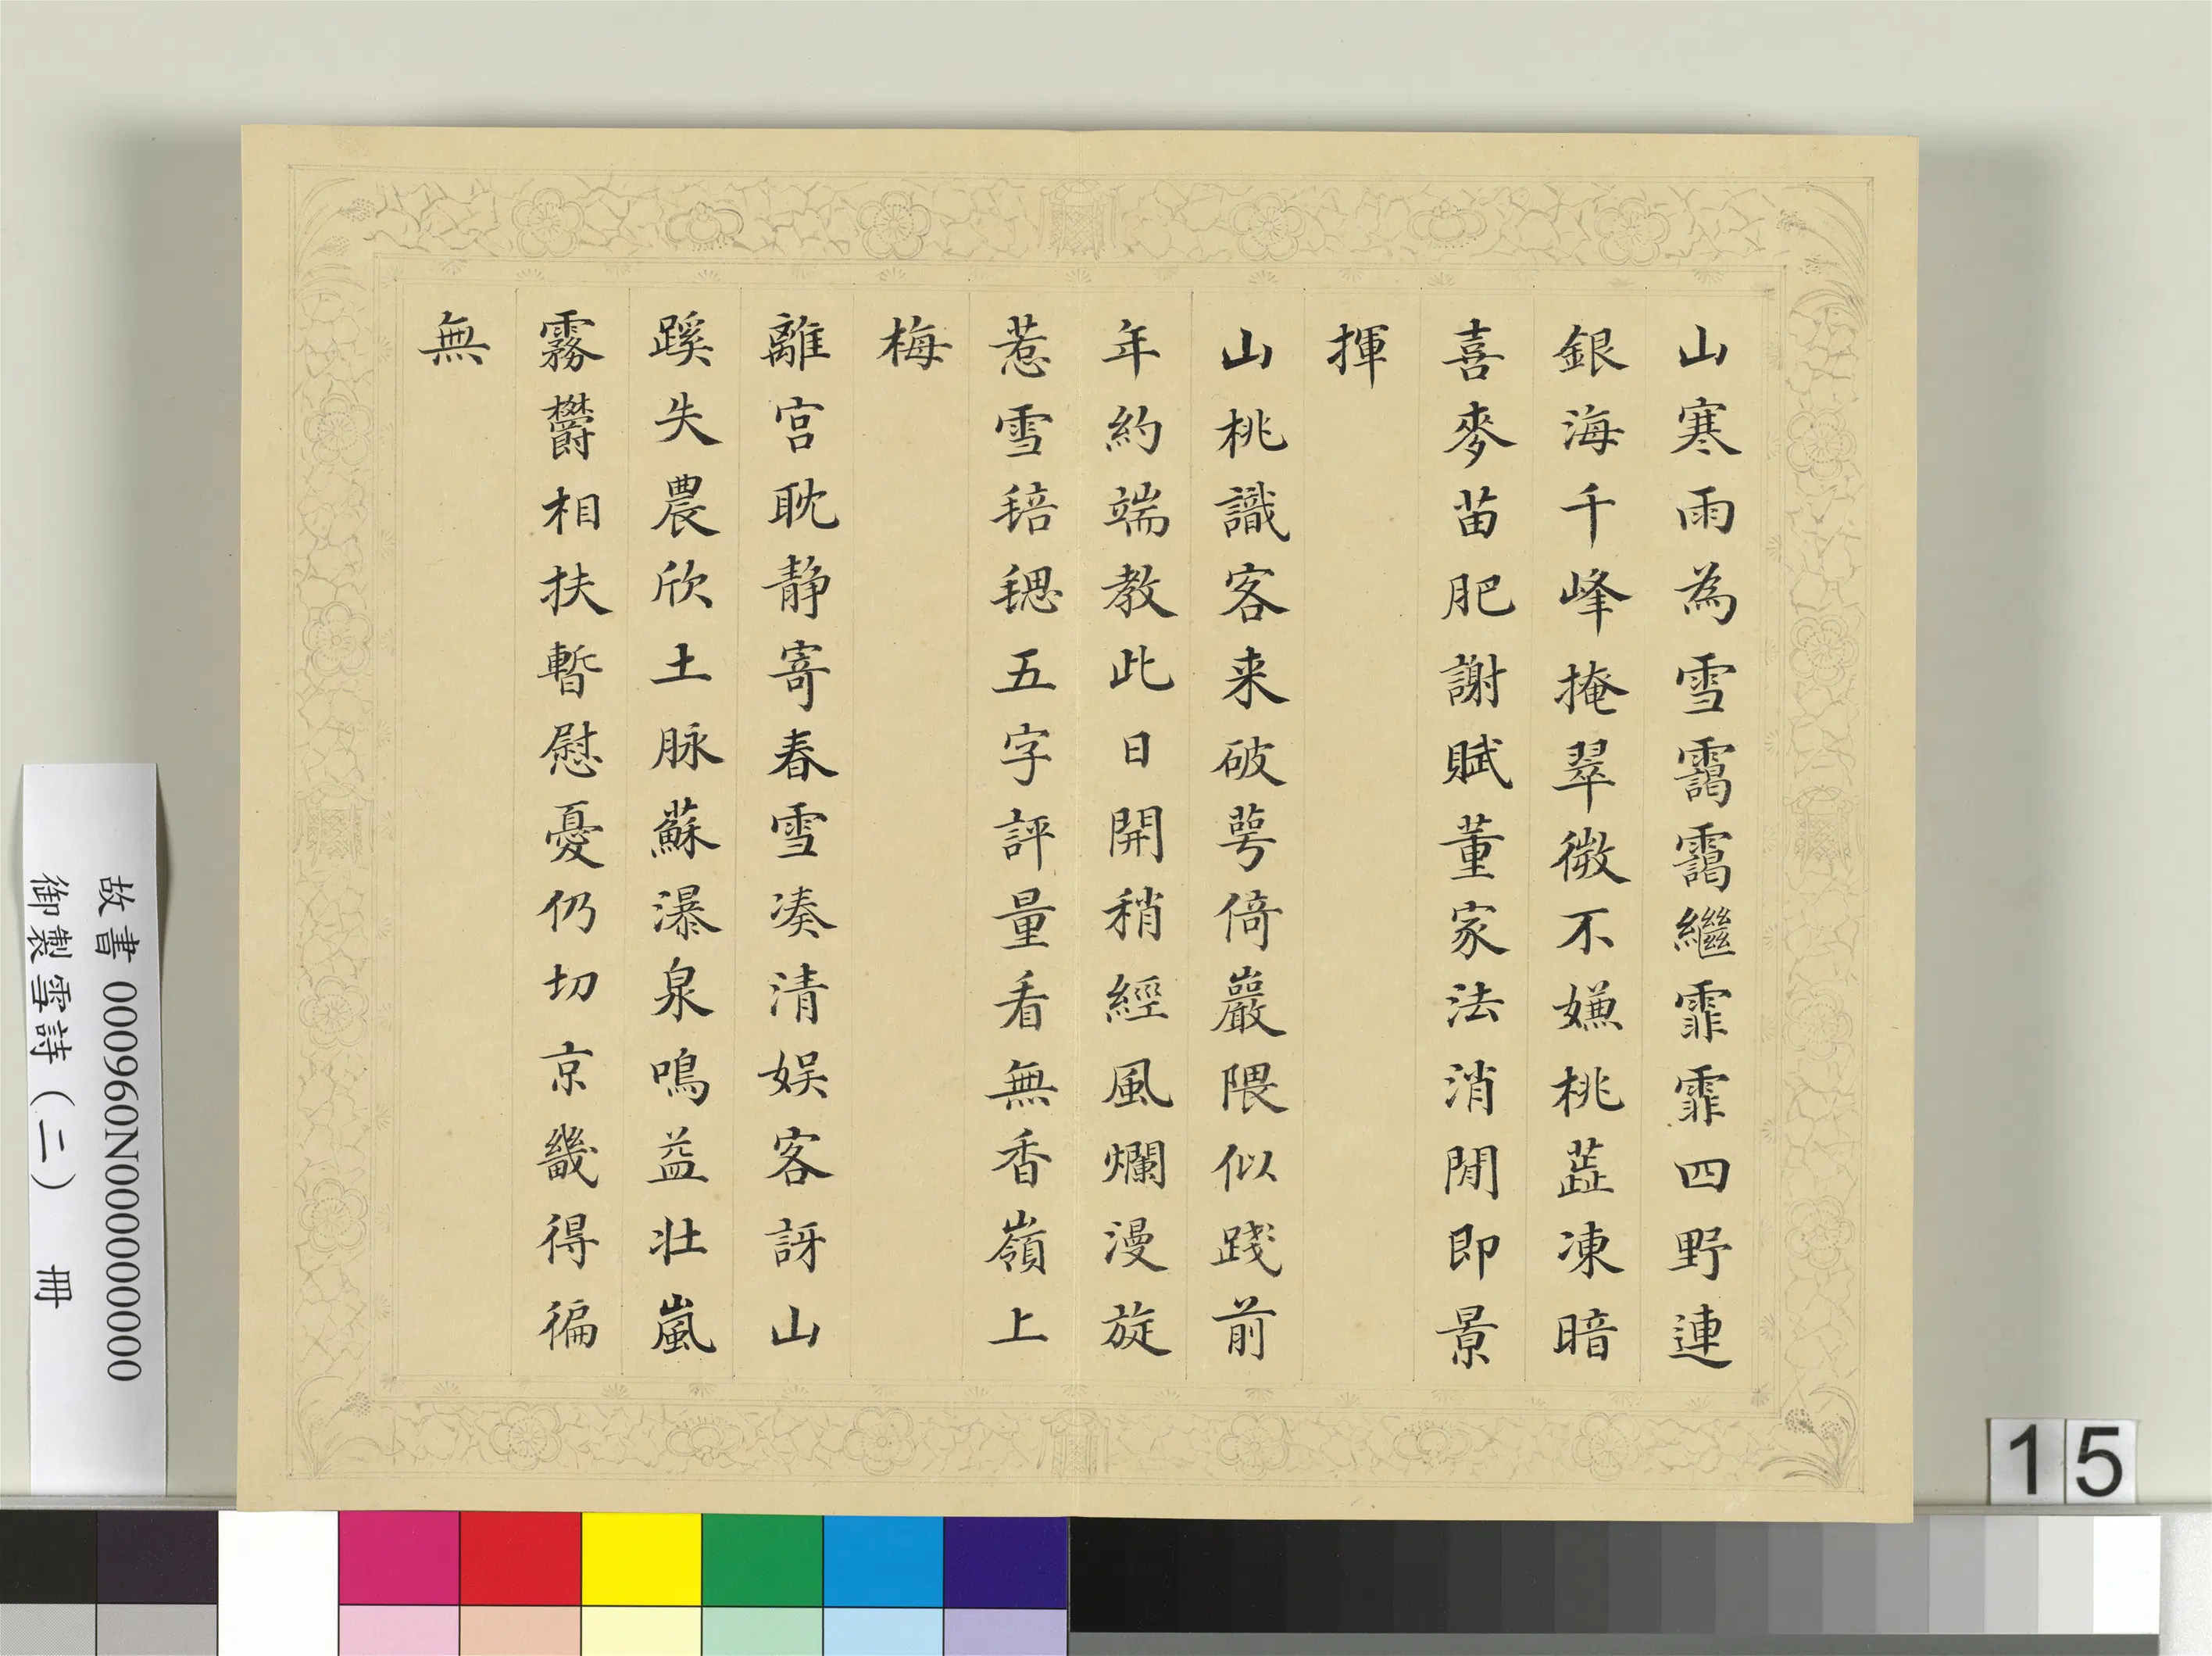 山寒雨為雪靄靄繼霏霏四野連
銀海千峰掩翠微不嫌桃蕋凍暗
喜麥苗肥謝賦董家法消閒即景
揮
山桃識客来破萼倚巖隈似踐前
年約端教此日開稍經風爛漫旋
惹雪毰毸五字評量看無香嶺上
梅
離宮耽静寄春雪凑清娱客訝山
蹊失農欣土脉蘇瀑泉鳴益壮嵐
霧欝相扶暫慰憂仍切京畿得徧
無
故書 000960N000000000
御製雪詩（二） 冊
15